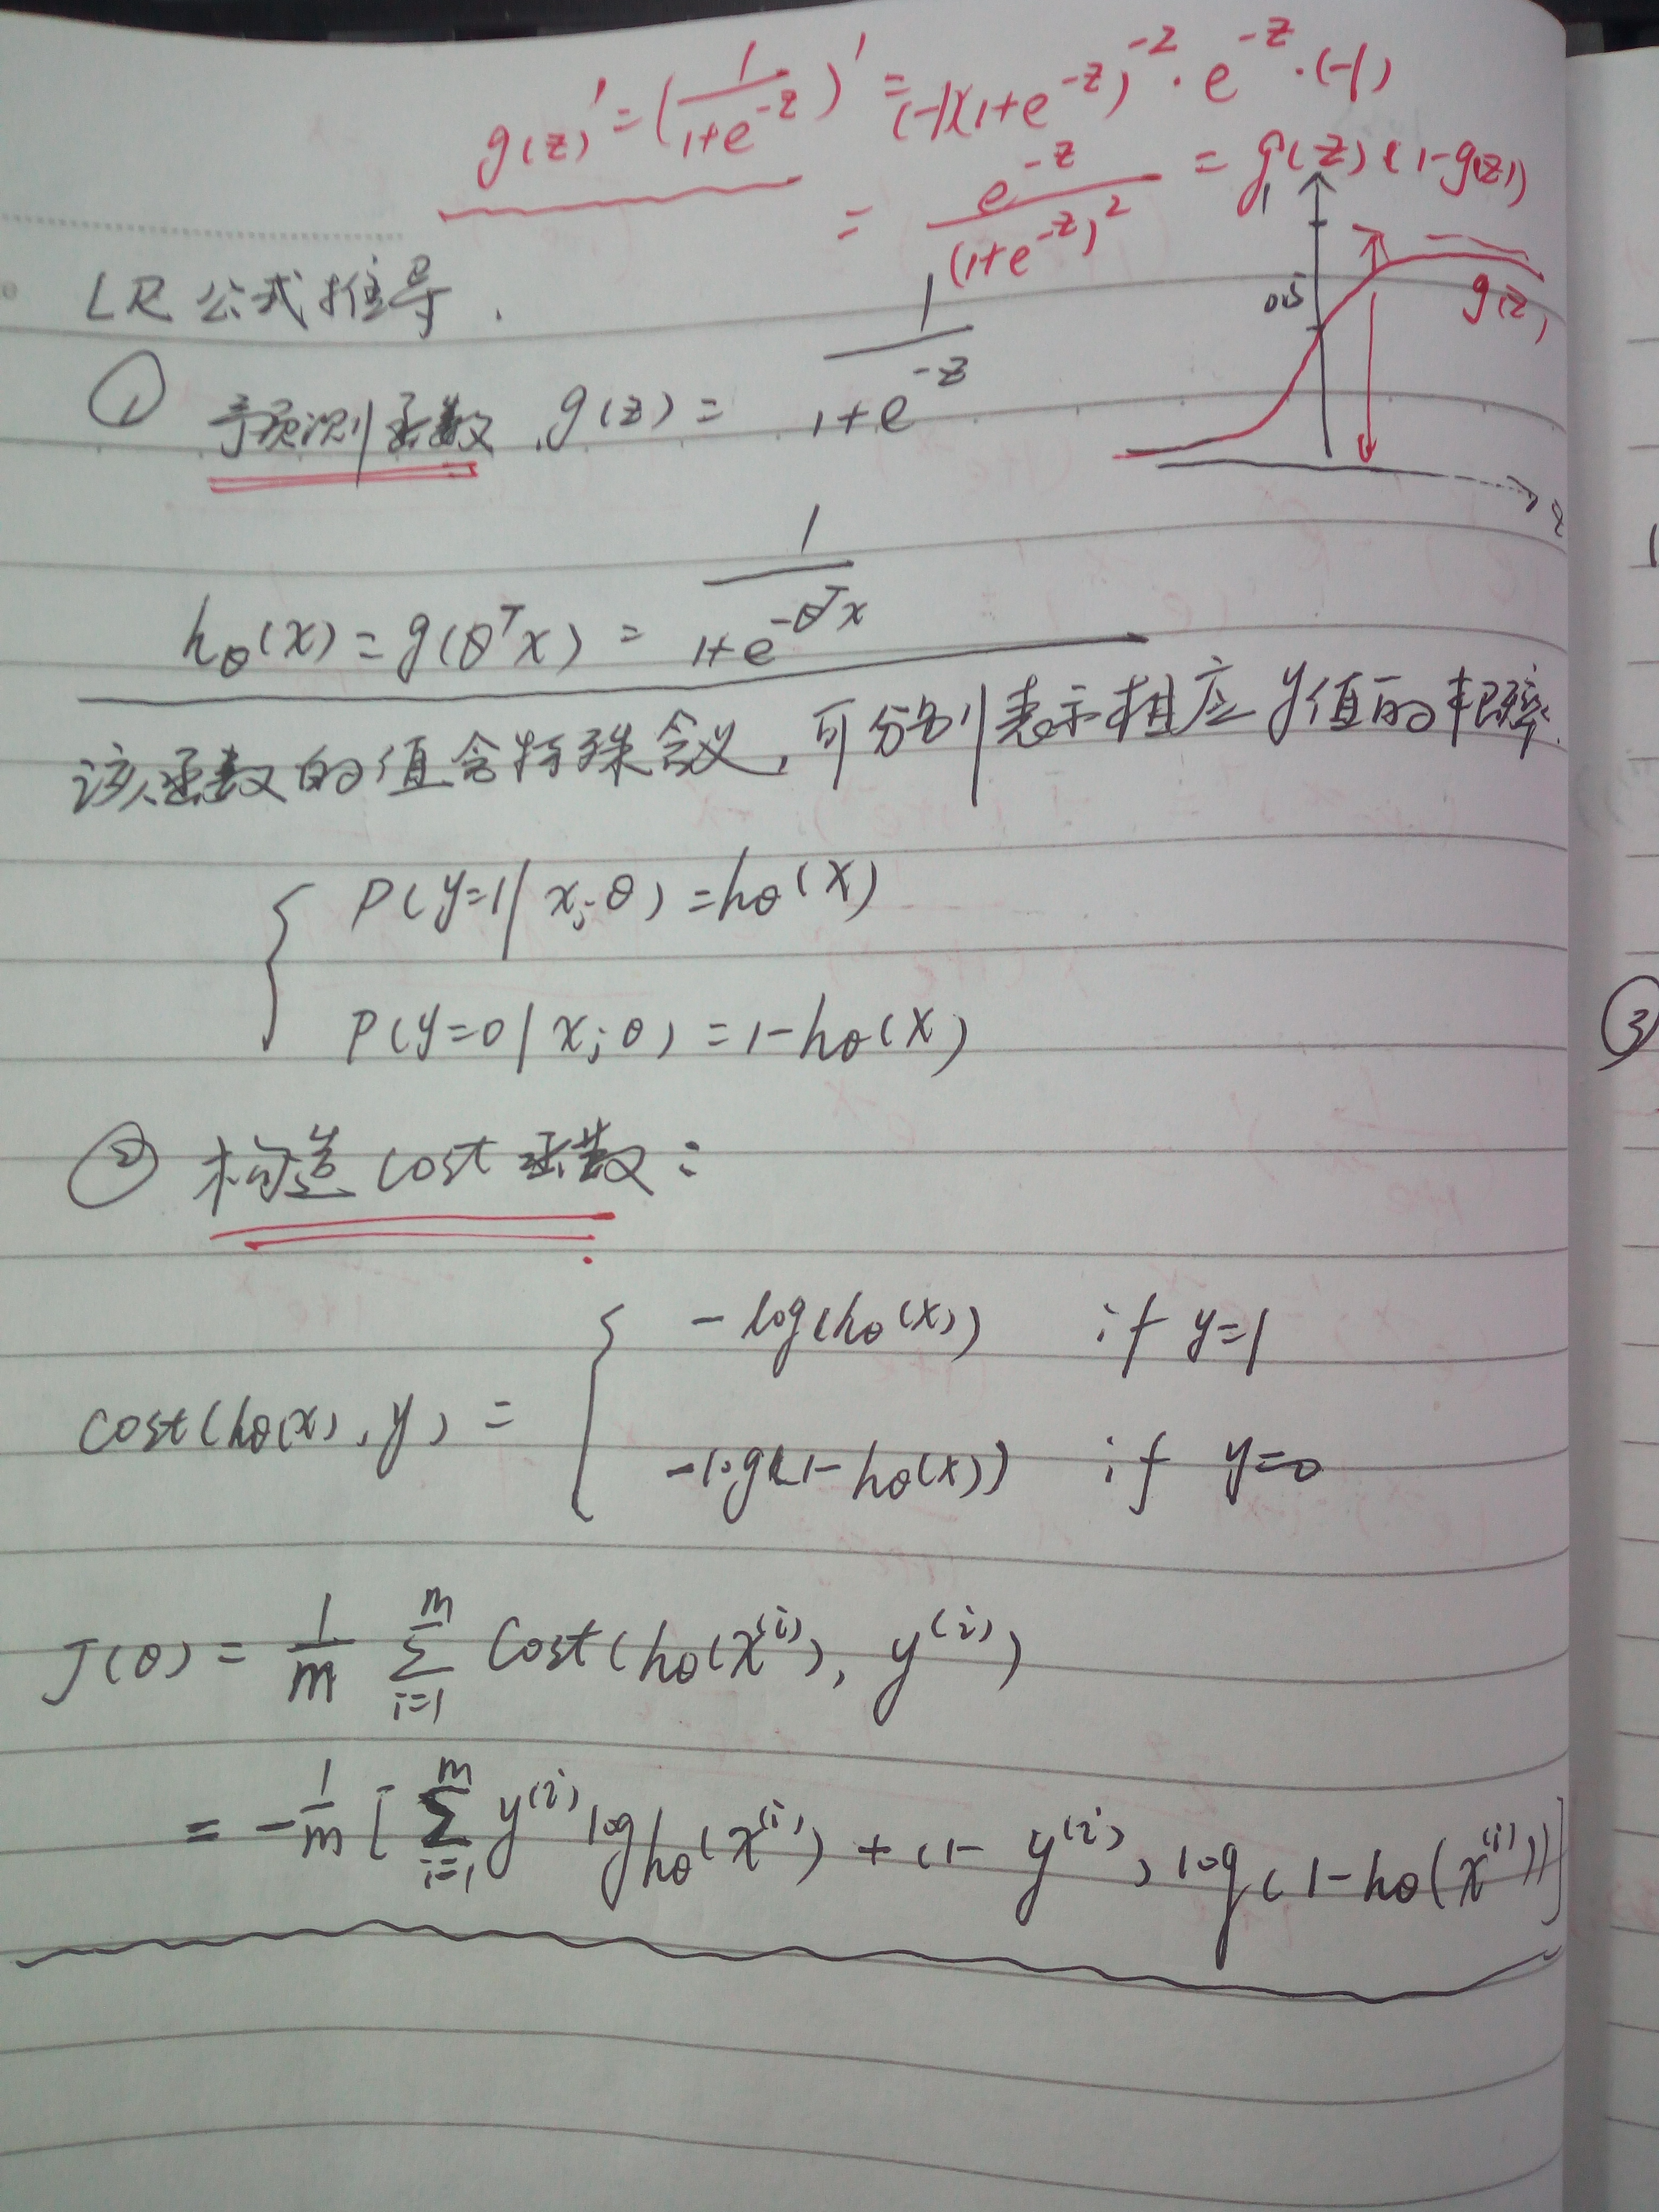 g(z)' = (1/(1+e^{-z}))' = (-1)(1+e^{-z})^{-2} · e^{-z} · (-1)
= e^{-z}/(1+e^{-z})^2 = g(z)(1-g(z))
1
0.5
g(z)
z
LR 公式推导.
① 预测函数. g(z) = 1/(1+e^{-z})
h_θ(x) = g(θ^T x) = 1/(1+e^{-θ^T x})
该函数的值含特殊含义, 可分别表示相应y值的概率.
{ P(y=1 | x; θ) = h_θ(x)
P(y=0 | x; θ) = 1-h_θ(x)
② 构造 cost 函数:
cost(h_θ(x), y) = { -log(h_θ(x)) if y=1
-log(1-h_θ(x)) if y=0
J(θ) = 1/m ∑_{i=1}^{m} Cost(h_θ(x^{(i)}), y^{(i)})
= -1/m [∑_{i=1}^{m} y^{(i)} log h_θ(x^{(i)}) + (1-y^{(i)}) log(1-h_θ(x^{(i)}))]
③